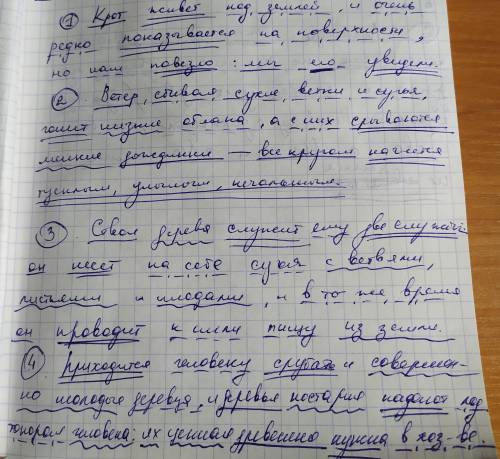 ① Крот живет под землей, и очень
редко показывается на поверхности,
но нам повезло: мы его увидели.
② Ветер, сбивая сухие ветки и сучья,
гонит низкие облака, а с них срываются
мелкие дождинки — все кругом кажется
тусклым, унылым, печальным.
③ Ствол дерева служит ему две службы:
он несет на себе сучья с ветвями,
листьями и плодами, и в то же время
он проводит к ним пищу из земли.
④ Приходится человеку срубать и совершен-
но молодые деревья, и деревья постарше падают под
топором человека: их ценная древесина нужна в хоз-ве.